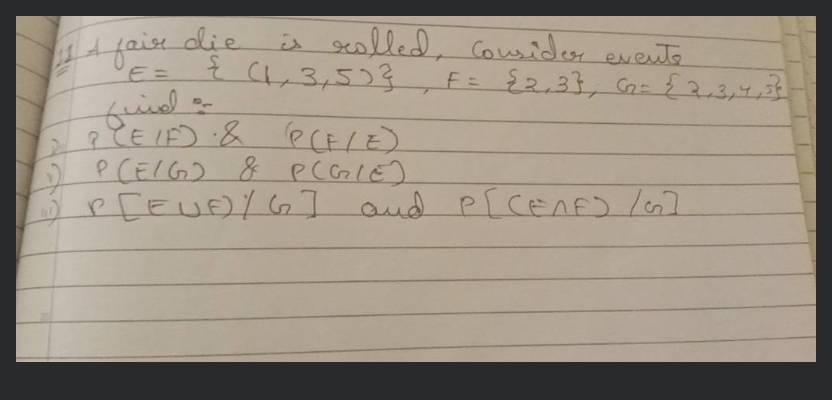 11 A fair die is rolled, Consider events
E = { (1, 3, 5) }, F = {2, 3}, G = {2, 3, 4, 5}
find :-
i) P(E/F) & P(F/E)
ii) P(E/G) & P(G/E)
iii) P[E∪F) / G] and P[(E∩F) / G]